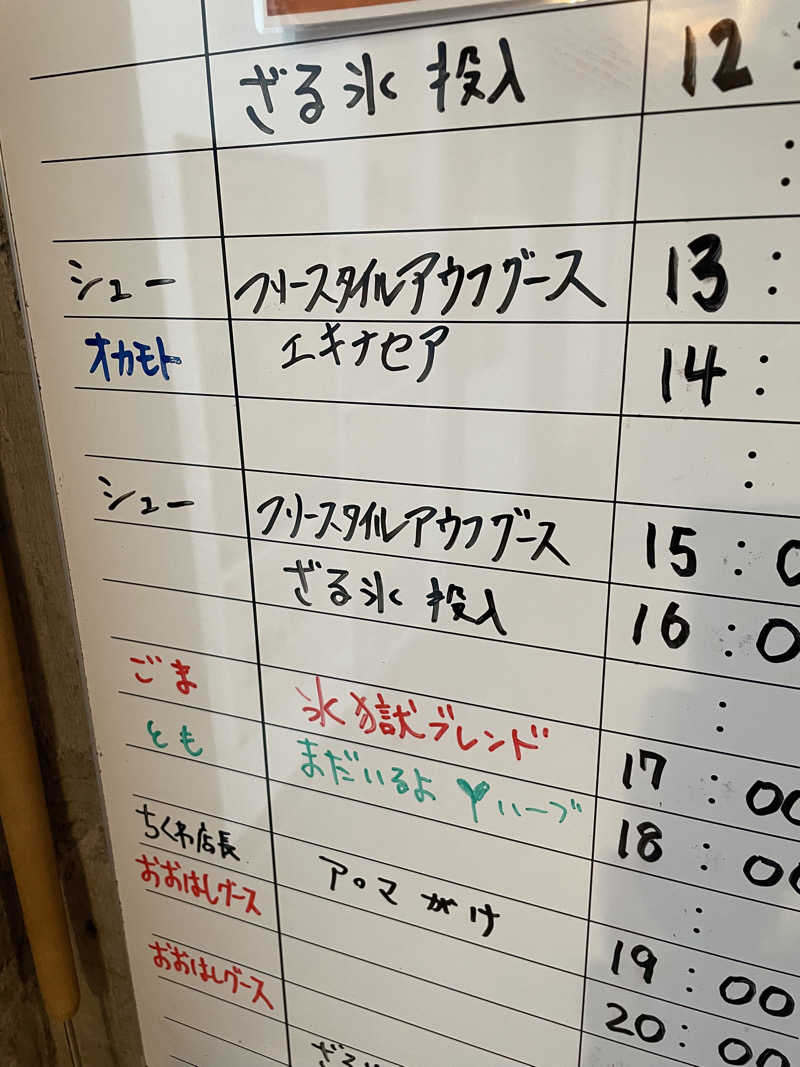 ざる氷 投入 12:
:
シュー フリースタイルアウフグース 13:
オカモト エキナセア 14:
:
シュー フリースタイルアウフグース 15:0
ざる氷 投入 16:0
:
ごま 氷獄ブレンド 17:00
とも まだいるよ ハーブ 18:00
:
ちくわ店長 アロマがけ 19:00
おおはしグース 20:00
おおはしグース
ざる